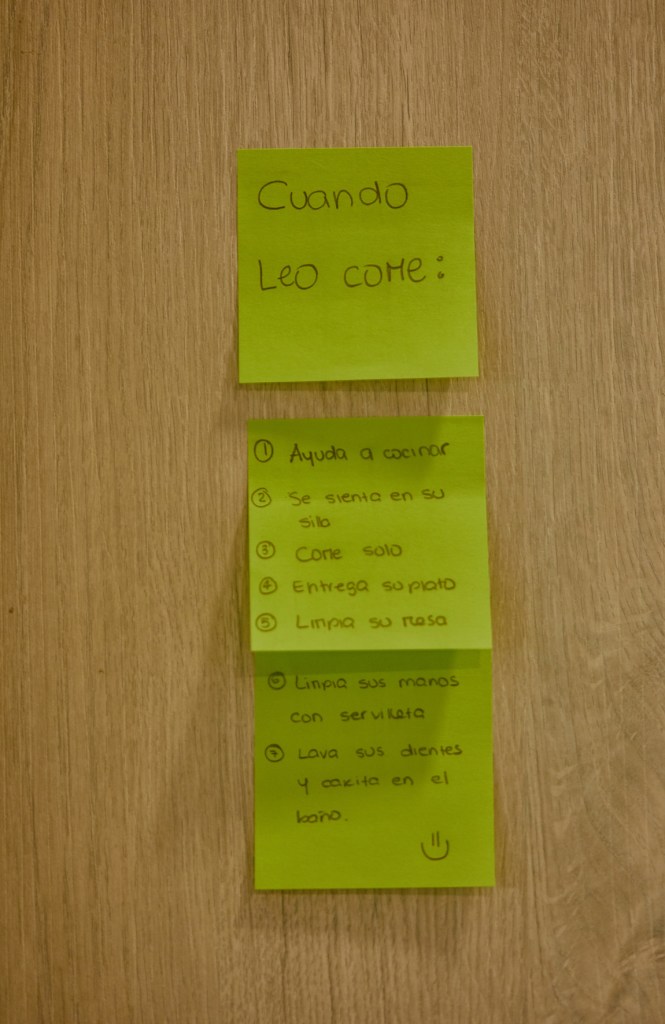 Cuando
Leo come:
① Ayuda a cocinar
② Se sienta en su
silla
③ Come solo
④ Entrega su plato
⑤ Limpia su mesa
⑥ Limpia sus manos
con servilleta
⑦ Lava sus dientes
y carita en el
baño.